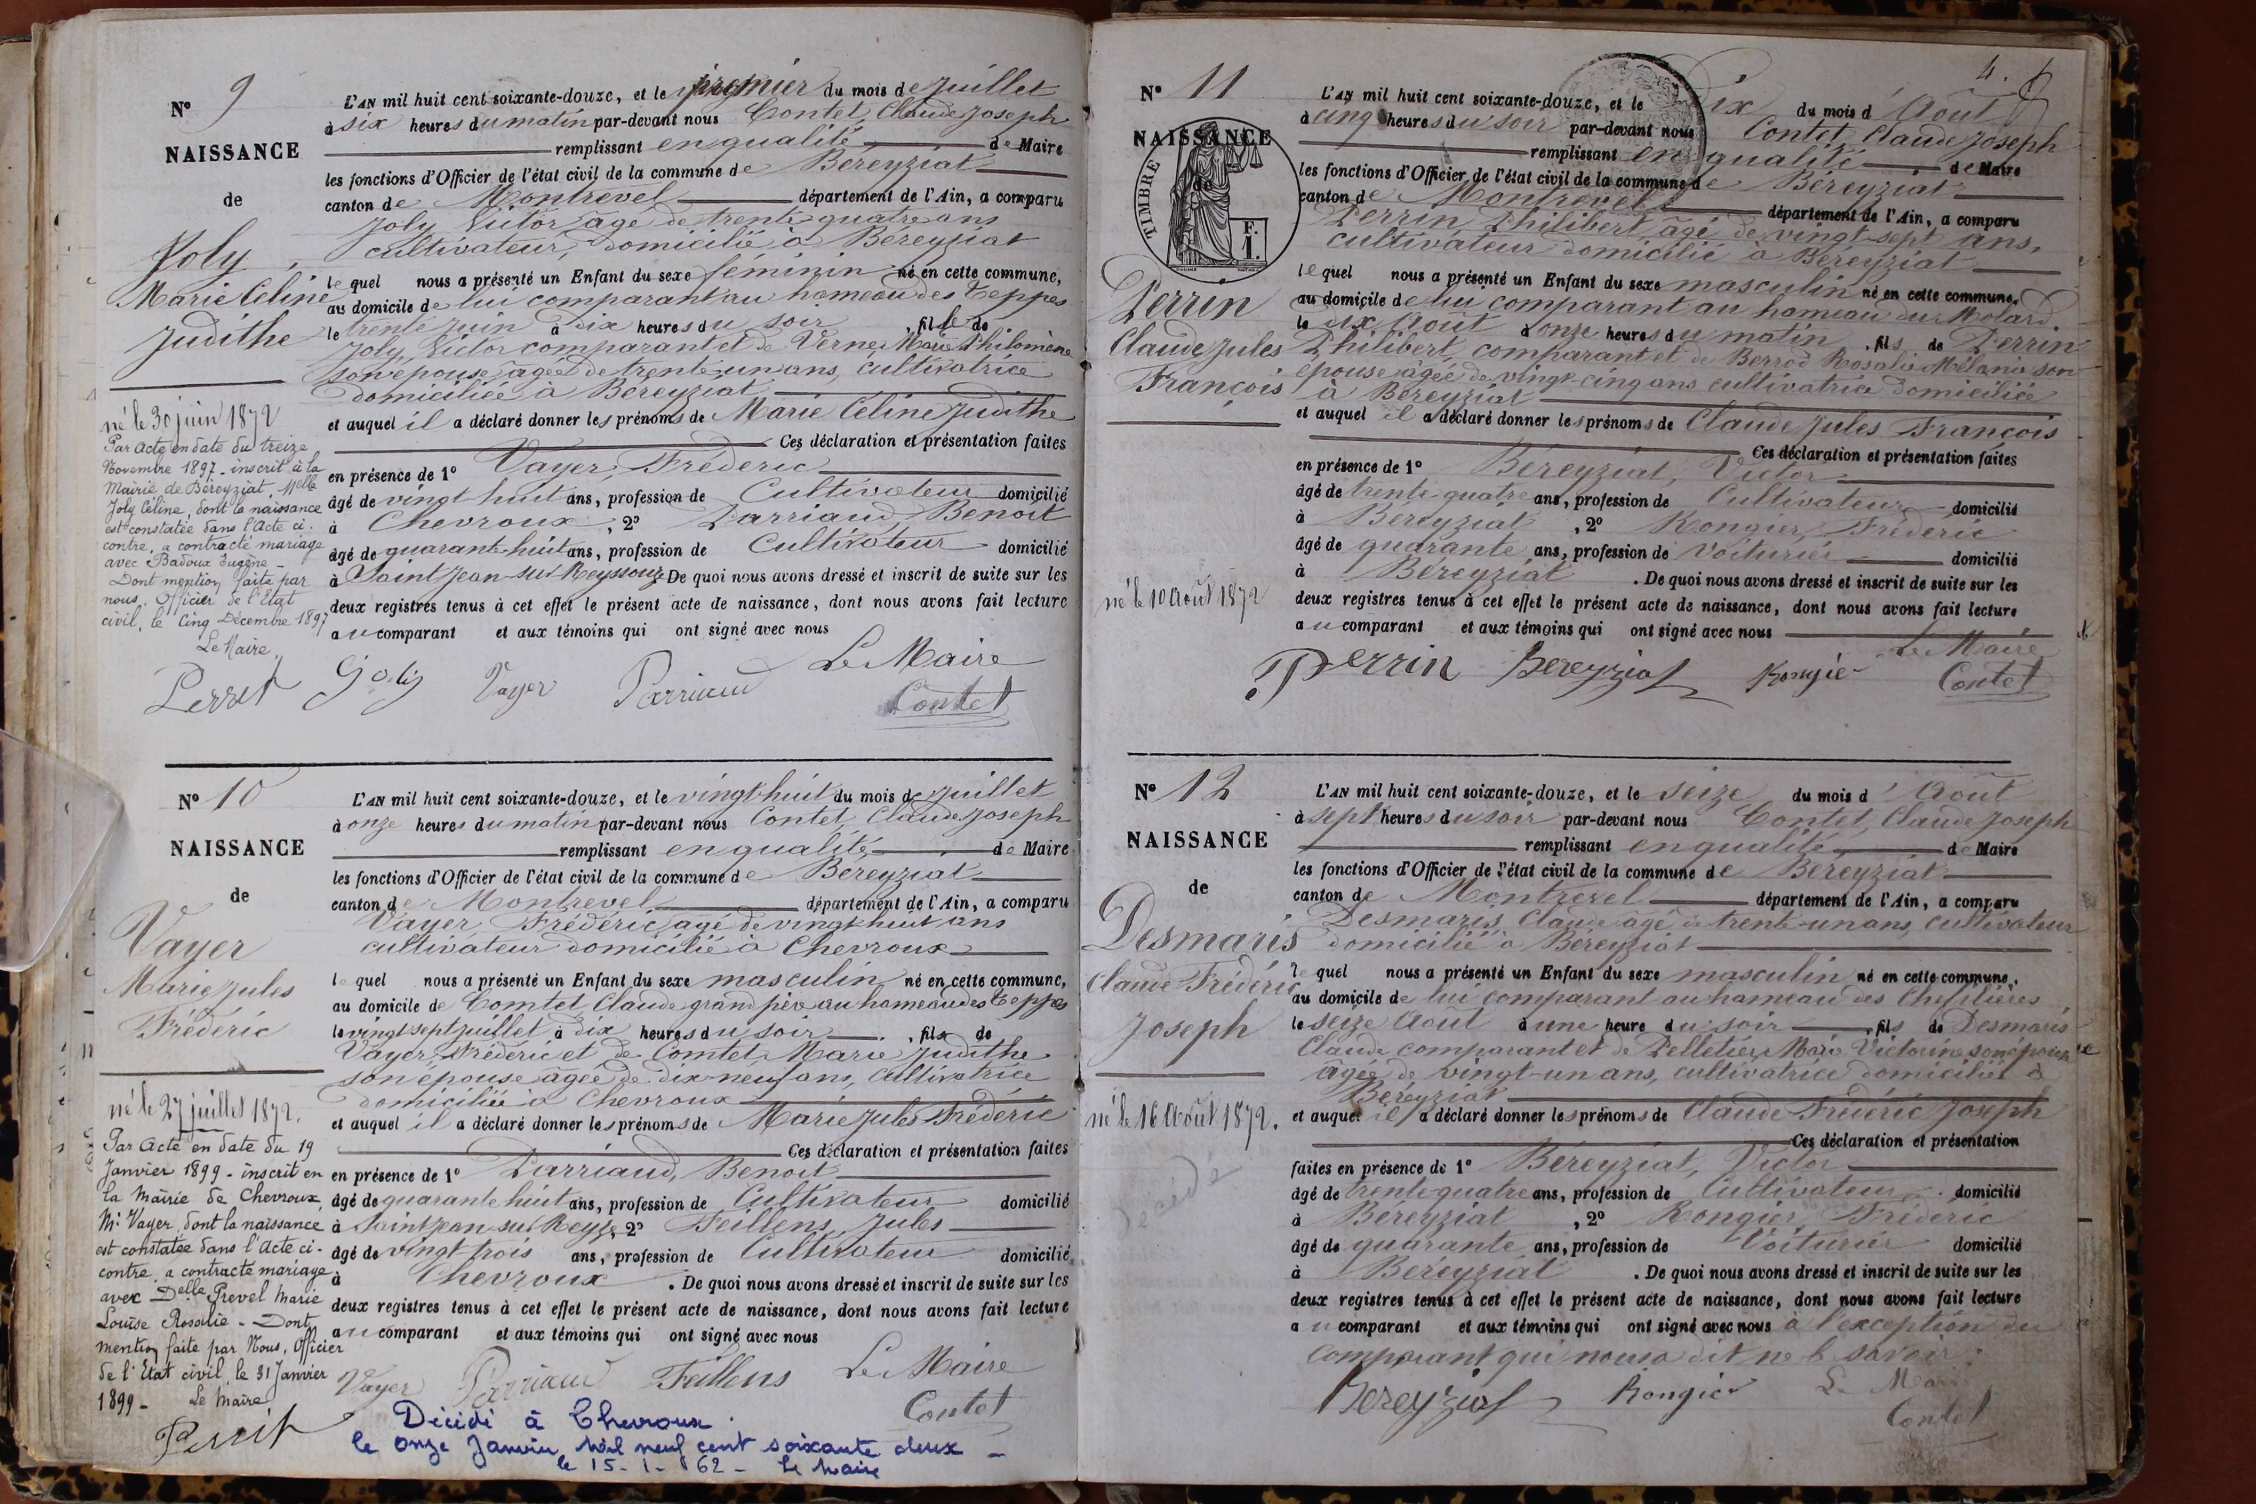 N° 9
NAISSANCE
de
Joly
Marie Céline
Judithe
né le 30 juin 1872
Par acte en date du treize
Novembre 1897 - inscrit à la
Mairie de Béreyziat, Melle
Joly Céline, dont la naissance
est constatée dans l'Acte ci-
contre, a contracté mariage
avec Badoux Eugène -
Dont mention faite par
nous, Officier de l'Etat
civil, le Cinq Décembre 1897
Le Maire,
Perret
L'AN mil huit cent soixante-douze, et le premier du mois de Juillet
à six heures du matin par-devant nous Contet, Claude Joseph
remplissant en qualité de Maire
les fonctions d'Officier de l'état civil de la commune de Béreyziat
canton de Montrevel département de l'Ain, a comparu
Joly Victor âgé de trente quatre ans
cultivateur, domicilié à Béreyziat
le quel nous a présenté un Enfant du sexe féminin né en cette commune,
au domicile de lui comparant au hameau des Teppes
le trente juin à dix heures du soir, fille de
Joly Victor comparant et de Verne Marie Philomène
son épouse âgée de trente-un ans, cultivatrice
domiciliée à Béreyziat
et auquel il a déclaré donner les prénoms de Marie Céline Judithe
Ces déclaration et présentation faites
en présence de 1° Vayer, Fréderic
âgé de vingt huit ans, profession de Cultivateur domicilié
à Chevroux, 2° Parriaud Benoit
âgé de quarante-huit ans, profession de Cultivateur domicilié
à Saint Jean-sur-Reyssouze De quoi nous avons dressé et inscrit de suite sur les
deux registres tenus à cet effet le présent acte de naissance, dont nous avons fait lecture
au comparant et aux témoins qui ont signé avec nous
Joly Vayer Parriaud Le Maire
Contet
N° 10
NAISSANCE
de
Vayer
Marie Jules
Fréderic
né le 27 juillet 1872.
Par Acte en date du 19
Janvier 1899 - inscrit en
la Mairie de Chevroux,
Mr Vayer, dont la naissance
est constatée dans l'Acte ci-
contre, a contracté mariage
avec Delle Prevel Marie
Louise Rosalie - Dont
mention faite par Nous, Officier
de l'Etat civil, le 31 Janvier
1899 - Le Maire,
Perret
L'AN mil huit cent soixante-douze, et le vingt-huit du mois de Juillet
à onze heures du matin par-devant nous Contet, Claude Joseph
remplissant en qualité de Maire
les fonctions d'Officier de l'état civil de la commune de Béreyziat
canton de Montrevel département de l'Ain, a comparu
Vayer, Frédéric, âgé de vingt huit ans
cultivateur domicilié à Chevroux
le quel nous a présenté un Enfant du sexe masculin né en cette commune,
au domicile de Comtet Claude grand père au hameau des Teppes
le vingt sept juillet à dix heures du soir, fils de
Vayer, Frédéric et de Comtet Marie Judithe
son épouse âgée de dix-neuf ans, cultivatrice
domiciliée à Chevroux
et auquel il a déclaré donner les prénoms de Marie Jules Fréderic
Ces déclaration et présentation faites
en présence de 1° Parriaud, Benoit
âgé de quarante huit ans, profession de Cultivateur domicilié
à Saint Jean-sur-Reysze, 2° Feillens, Jules
âgé de vingt trois ans, profession de Cultivateur domicilié
à Chevroux. De quoi nous avons dressé et inscrit de suite sur les
deux registres tenus à cet effet le présent acte de naissance, dont nous avons fait lecture
au comparant et aux témoins qui ont signé avec nous
Vayer Parriaud Feillens Le Maire
Contet
Décédé à Chevroux.
le onze Janvier Mil neuf cent soixante deux -
le 15-1-1962 - Le Maire
4.
N° 11
NAISSANCE
de
TIMBRE
F.
1.
Perrin
Claude Jules
François
né le 10 Août 1872
L'AN mil huit cent soixante-douze, et le Dix du mois d'Août
à cinq heures du soir par-devant nous Contet, Claude Joseph
remplissant en qualité de Maire
les fonctions d'Officier de l'état civil de la commune de Béreyziat
canton de Montrevel département de l'Ain, a comparu
Perrin Philibert, âgé de vingt-sept ans,
cultivateur domicilié à Béreyziat
le quel nous a présenté un Enfant du sexe masculin né en cette commune,
au domicile de lui comparant au hameau du Molard.
le dix Août à onze heures du matin, fils de Perrin
Philibert, comparant et de Berrod Rosalie Mélanie son
épouse âgée de vingt-cinq ans cultivatrice domiciliée
à Béreyziat
et auquel il a déclaré donner les prénoms de Claude Jules François
Ces déclaration et présentation faites
en présence de 1° Béreyziat, Victor
âgé de trente quatre ans, profession de Cultivateur domicilié
à Béreyziat, 2° Rongier, Fréderic
âgé de quarante ans, profession de Voiturier domicilié
à Béreyziat. De quoi nous avons dressé et inscrit de suite sur les
deux registres tenus à cet effet le présent acte de naissance, dont nous avons fait lecture
au comparant et aux témoins qui ont signé avec nous
Le Maire
Perrin Bereyziat Rongier Contet
N° 12
NAISSANCE
de
Desmaris
Claude Frédéric
Joseph
né le 16 Août 1872.
Décédé
L'AN mil huit cent soixante-douze, et le seize du mois d'Août
à sept heures du soir par-devant nous Contet, Claude Joseph
remplissant en qualité de Maire
les fonctions d'Officier de l'état civil de la commune de Béreyziat
canton de Montrevel département de l'Ain, a comparu
Desmaris, Claude âgé de trente-un ans, cultivateur
domicilié à Béreyziat
le quel nous a présenté un Enfant du sexe masculin né en cette commune,
au domicile de lui comparant au hameau des
le seize Août à une heure du soir, fils de Desmaris
Claude comparant et de Pelletier Marie Victorine son épouse
âgée de vingt-un ans, cultivatrice domiciliée à
Béreyziat
et auquel il a déclaré donner les prénoms de Claude Frédéric Joseph
Ces déclaration et présentation
faites en présence de 1° Béreyziat, Victor
âgé de trente quatre ans, profession de Cultivateur domicilié
à Béreyziat, 2° Rongier, Fréderic
âgé de quarante ans, profession de Voiturier domicilié
à Béreyziat. De quoi nous avons dressé et inscrit de suite sur les
deux registres tenus à cet effet le présent acte de naissance, dont nous avons fait lecture
au comparant et aux témoins qui ont signé avec nous à l'exception du
comparant qui nous a dit ne le savoir.
Bereyziat Rongier Le Maire
Contet